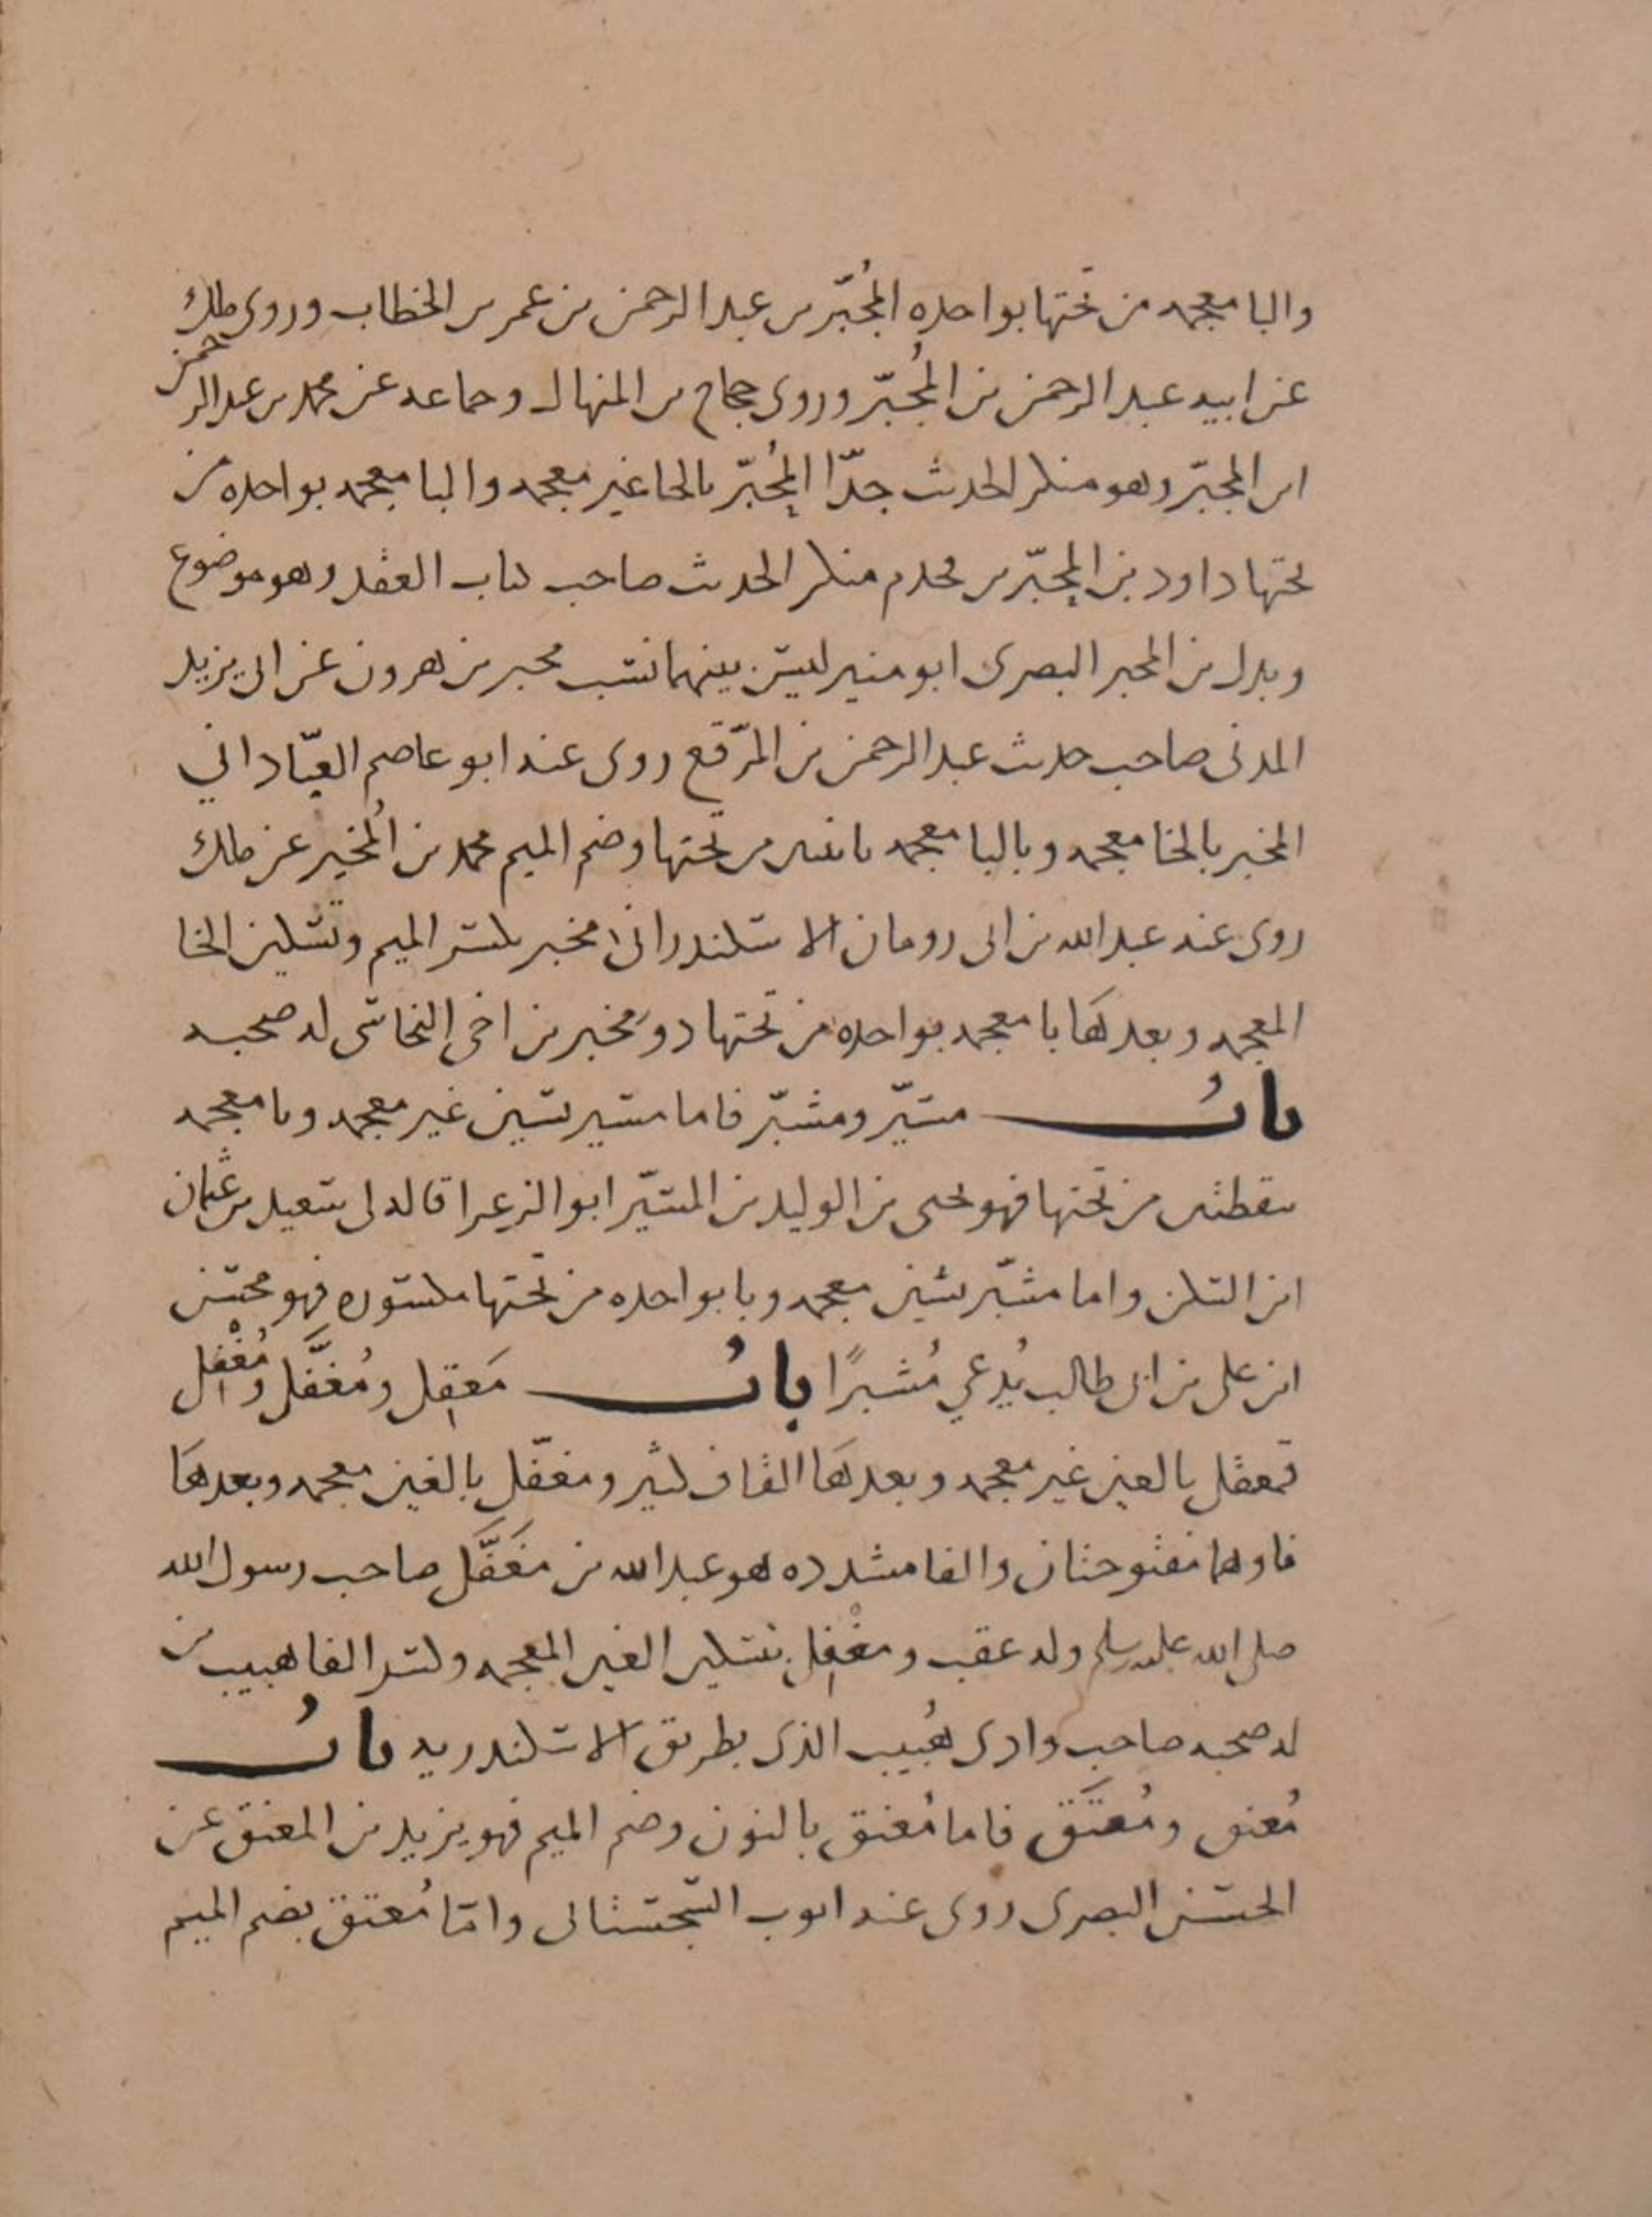 والبا معجمه من تحتها بواحده المُجَبّر بن عبد الرحمن بن عمر بن الخطاب وروى ملك
عن ابيه عبد الرحمن بن المُجَبّر وروى حجاج بن المنهال وجماعه عن محمد بن عبد الرحمن
ابن المجبّر وهو منكر الحديث جدّا المُحَبّر بالحا غير معجمه والبا معجمه بواحده من
تحتها داود بن المحبّر بن قحذم منكر الحديث صاحب كتاب العقل وهو موضوع
وبدل بن المحبر البصرى ابو منير ليس بينهما نسب محبر بن هرون عن ابى يزيد
المدنى صاحب حديث عبد الرحمن بن المرّقع روى عنه ابو عاصم العبّاداني
المخير بالخا معجمه وباليا معجمه باثنين من تحتها وضم الميم محمد بن المُخير عن ملك
روى عنه عبد الله بن ابى رومان الاسكندرانى مخبر بكسر الميم وتسكين الخا
المعجمه وبعدها با معجمه بواحده من تحتها ذو مخبر بن اخى النجاشى له صحبه
بابُ مسيّر ومشبّر فاما مسير بسين غير معجمه ويا معجمه
بنقطتين من تحتها فهو يحيى بن الوليد بن المسيّر ابو الزعرا قاله لى سعيد بن عثمان
ابن السكن واما مشبّر بشين معجمه وبا بواحده من تحتها مكسوره فهو محسن
ابن على بن ابى طالب يُدعي مُشبرًا بابُ مَعقِل ومُغفَّل ومُغْفِل
فمعقل بالعين غير معجمه وبعدها القاف كثير ومغفّل بالغين معجمه وبعدها
فا وهما مفتوحتان والفا مشدده هو عبد الله بن مغَفَّل صاحب رسول الله
صلى الله عليه وسلم وله عقب ومغْفِل بتسكين الغين المعجمه وكسر الفا هبيب بن
له صحبه صاحب وادى هُبيب الذى بطريق الاسكندريه بابُ
مُعنق ومُعتَق فاما مُعنق بالنون وضم الميم فهو يزيد بن المعنق عن
الحسن البصرى روى عنه ايوب السّختيانى وامّا مُعتق بضم الميم